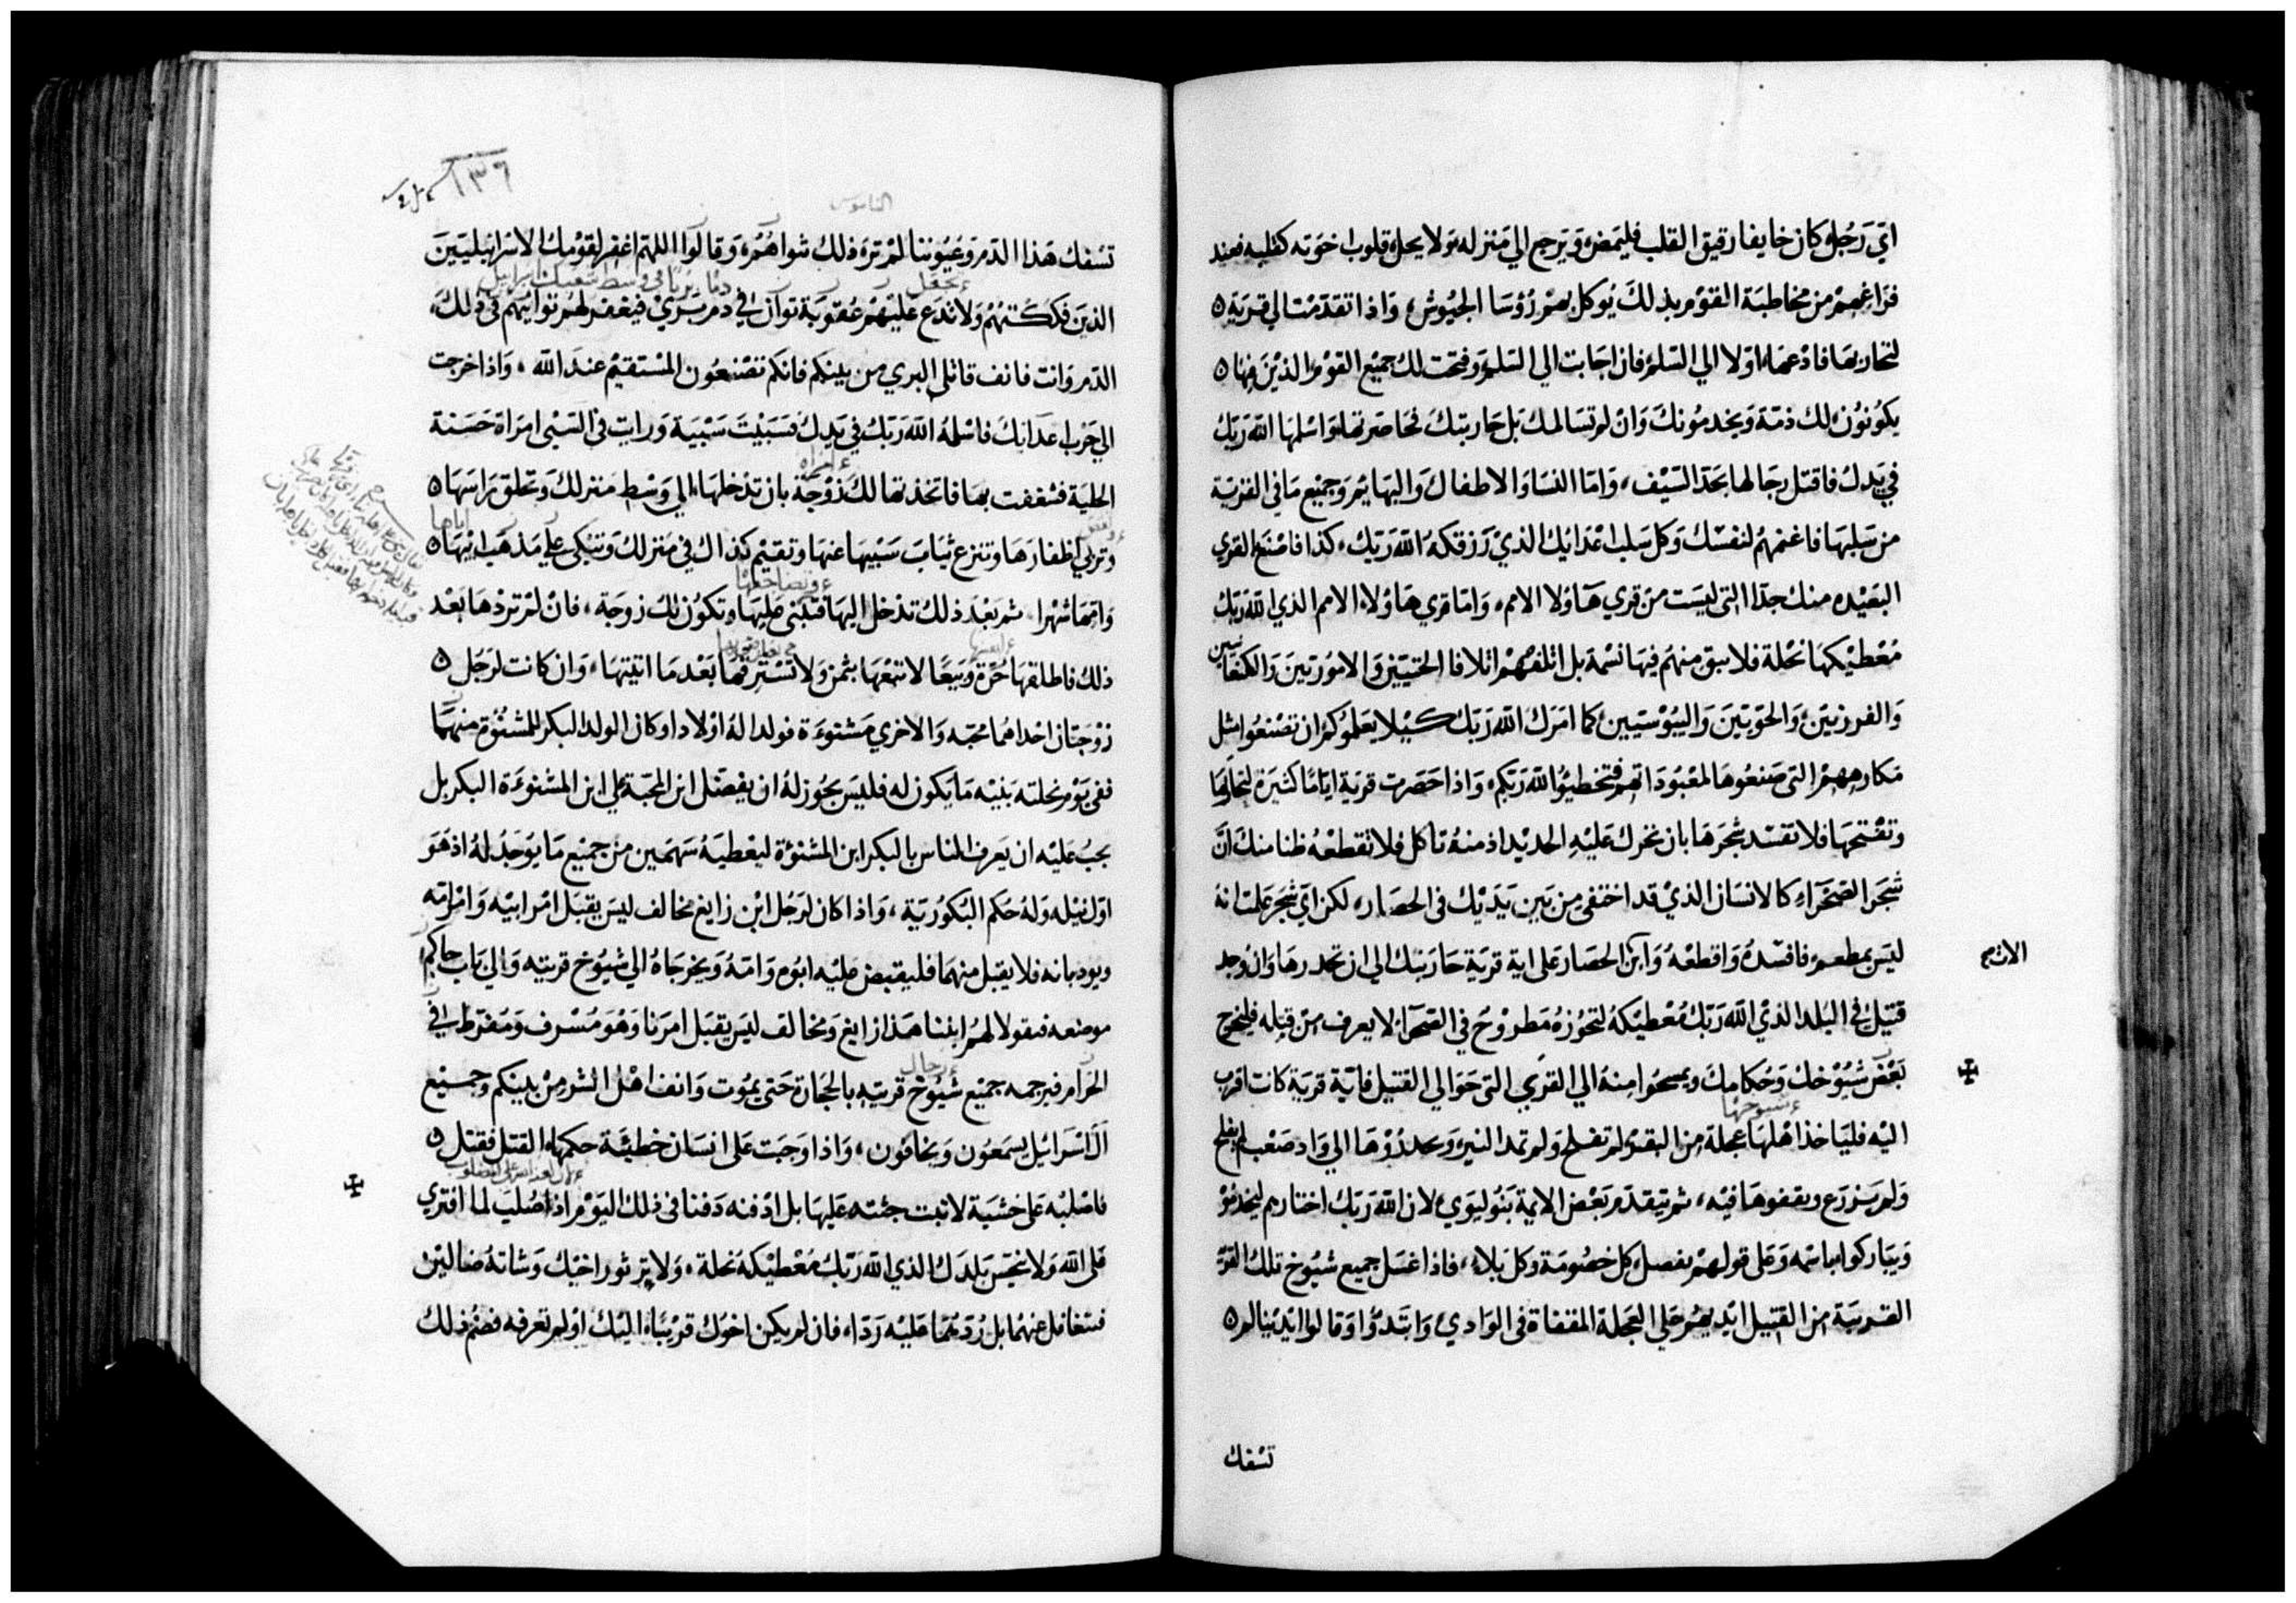 اي رجل كان خايفا رقيق القلب فليمض ويرجع الي منزله ولا يحل قلوب اخوته كقلبه فعند
فراغهم من مخاطبة القوم بذلك يوكل بهم رؤسا الجيوش، واذا تقدمت الي قرية
لتحاربها فادعها اولا الي السلم فان اجابت الي السلم وفتحت لك جميع القوم الذين فيها
يكونون لك ذمة ويخدمونك وان لم تسالمك بل حاربتك فحاصرتها واسلمها الله ربك
في يدك فاقتل رجالها بحد السيف، واما النسا والاطفال والبهايم وجميع ما في القرية
من سلبها فاغنمهم لنفسك وكل سلب اعدائك الذي رزقكه الله ربك، كذا فاصنع القري
البعيده منك جدا التي ليست من قري هاولا الامم، واما قري هاولاء الامم الذي الله ربك
معطيكها نحلة فلا تبق منهم فيها نسمة بل اتلفهم اتلافا الحتيين والاموريين والكنعانيين
والفرزيين والحويين واليبوسيين كما امرك الله ربك كيلا يعلموكم ان تصنعوا مثل
مكارههم التي صنعوها لمعبوداتهم فتخطيوا الله ربكم، واذا حصرت قرية اياما كثيرة لتحاربها
وتفتحها فلا تفسد شجرها بان تحرك عليه الحديد اذ منه تاكل فلا تقطعه ظنا منك ان
شجر الصحراء كالانسان الذي قد اختفي من بين يديك في الحصار، لكن اي شجر علمت انه
ليس بمطعم فافسده واقطعه وابن الحصار علي اية قرية حاربتك الي ان تحدرها وان وجد
قتيل في البلد الذي الله ربك معطيكه لتحوزه مطروح في الصحرا لا يعرف من قتله فليخرج
بعض شيوخك وحكامك ويمسحوا منه الي القري التي حوالي القتيل فاية قرية كانت اقرب
ء شيوخها
اليه فلياخذ اهلها عجلة من البقر لم تفلح ولم تمد النير ويحدروها الي واد صعب لم يفلح
ولم يزرع ويقفوها فيه، ثم يتقدم بعض الايمة بنو ليوي لان الله ربك اختارهم ليخدموه
ويباركوا باسمه وعلي قولهم يفصل كل خصومة وكل بلاء، فاذا غسل جميع شيوخ تلك القرية
القريبة من القتيل ايديهم علي العجلة المقفاة في الوادي وابتدوا وقالوا ايدينا لم
تسفك
١٣٦
الناموس
تسفك هذا الدم وعيوننا لم تره ذلك شواهم، وقالوا اللهم اغفر لقومك الاسرائيليين
ء تجعل دما بريا في وسط شعبك اسراييل
الذين فككتهم ولا تدع عليهم عقوبة توان في دم بري فيغفر لهم توانيهم في ذلك،
الدم وانت فانف قاتل البري من بينكم فانكم تصنعون المستقيم عند الله، واذا خرجت
الي حرب اعدايك فاسلمه الله ربك في يدك فسبيت سبية ورايت في السبي امراة حسنة
ء امراه
الحلية فشغفت بها فاتخذتها لك زوجة بان تدخلها الي وسط منزلك وتحلق راسها
وتربي اظفارها وتنزع ثياب سبيها عنها وتقيم كذاك في منزلك وتبكي علي مذهب ابيها
وامها شهرا، ثم بعد ذلك تدخل اليها فتبني عليها وتكون لك زوجة، فان لم تردها بعد
ذلك فاطلقها حرة وبيعا لا تبعها بثمن ولا تسترقها بعد ما اتيتها، وان كانت لرجل
زوجتان احداهما محبه والاخري مشنوءة فولدا له اولادا وكان الولد البكر للمشنؤة منهما
ففي يوم نحلته بنيه ما يكون له فليس يجوز له ان يفضل ابن المحبة علي ابن المشنوءة البكر بل
يجب عليه ان يعرف الناس بالبكر ابن المشنؤة ليعطيه سهمين من جميع ما يوجد له اذ هو
اول نيله وله حكم البكورية، واذا كان لرجل ابن زايغ مخالف ليس يقبل امر ابيه وامر امه
ويودبانه فلا يقبل منهما فليقبض عليه ابوه وامه ويخرجاه الي شيوخ قريته والي باب حاكم
موضعه فيقولا لهم ابننا هذا زايغ ومخالف ليس يقبل امرنا وهو مسرف ومفرط في
ء رجال
الحرام فيرجمه جميع شيوخ قريته بالحجارة حتي يموت وانف اهل الشر من بينكم وجميع
ال اسرائيل يسمعون ويخافون، واذا وجبت علي انسان خطيئة حكمها القتل فقتل
فاصلبه علي خشبة لا تبت جثته عليها بل ادفنه دفنا في ذلك اليوم اذا صلب لما افتري
علي الله ولا تنجس بلدك الذي الله ربك معطيكه نحلة، ولا ير ثور اخيك وشاته ضالين
فتتغافل عنهما بل ردهما عليه ردا، فان لم يكن اخوك قريبا اليك او لم تعرفه فضم ذلك